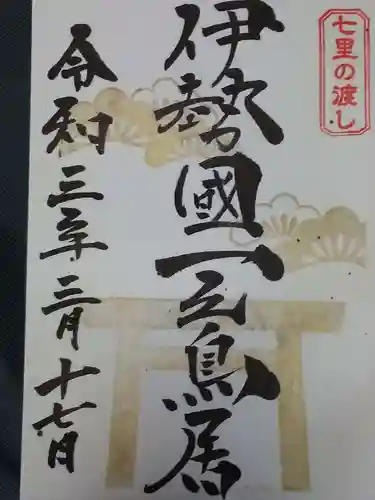 七里の渡し
伊勢國一之鳥居
令和三年三月十七日